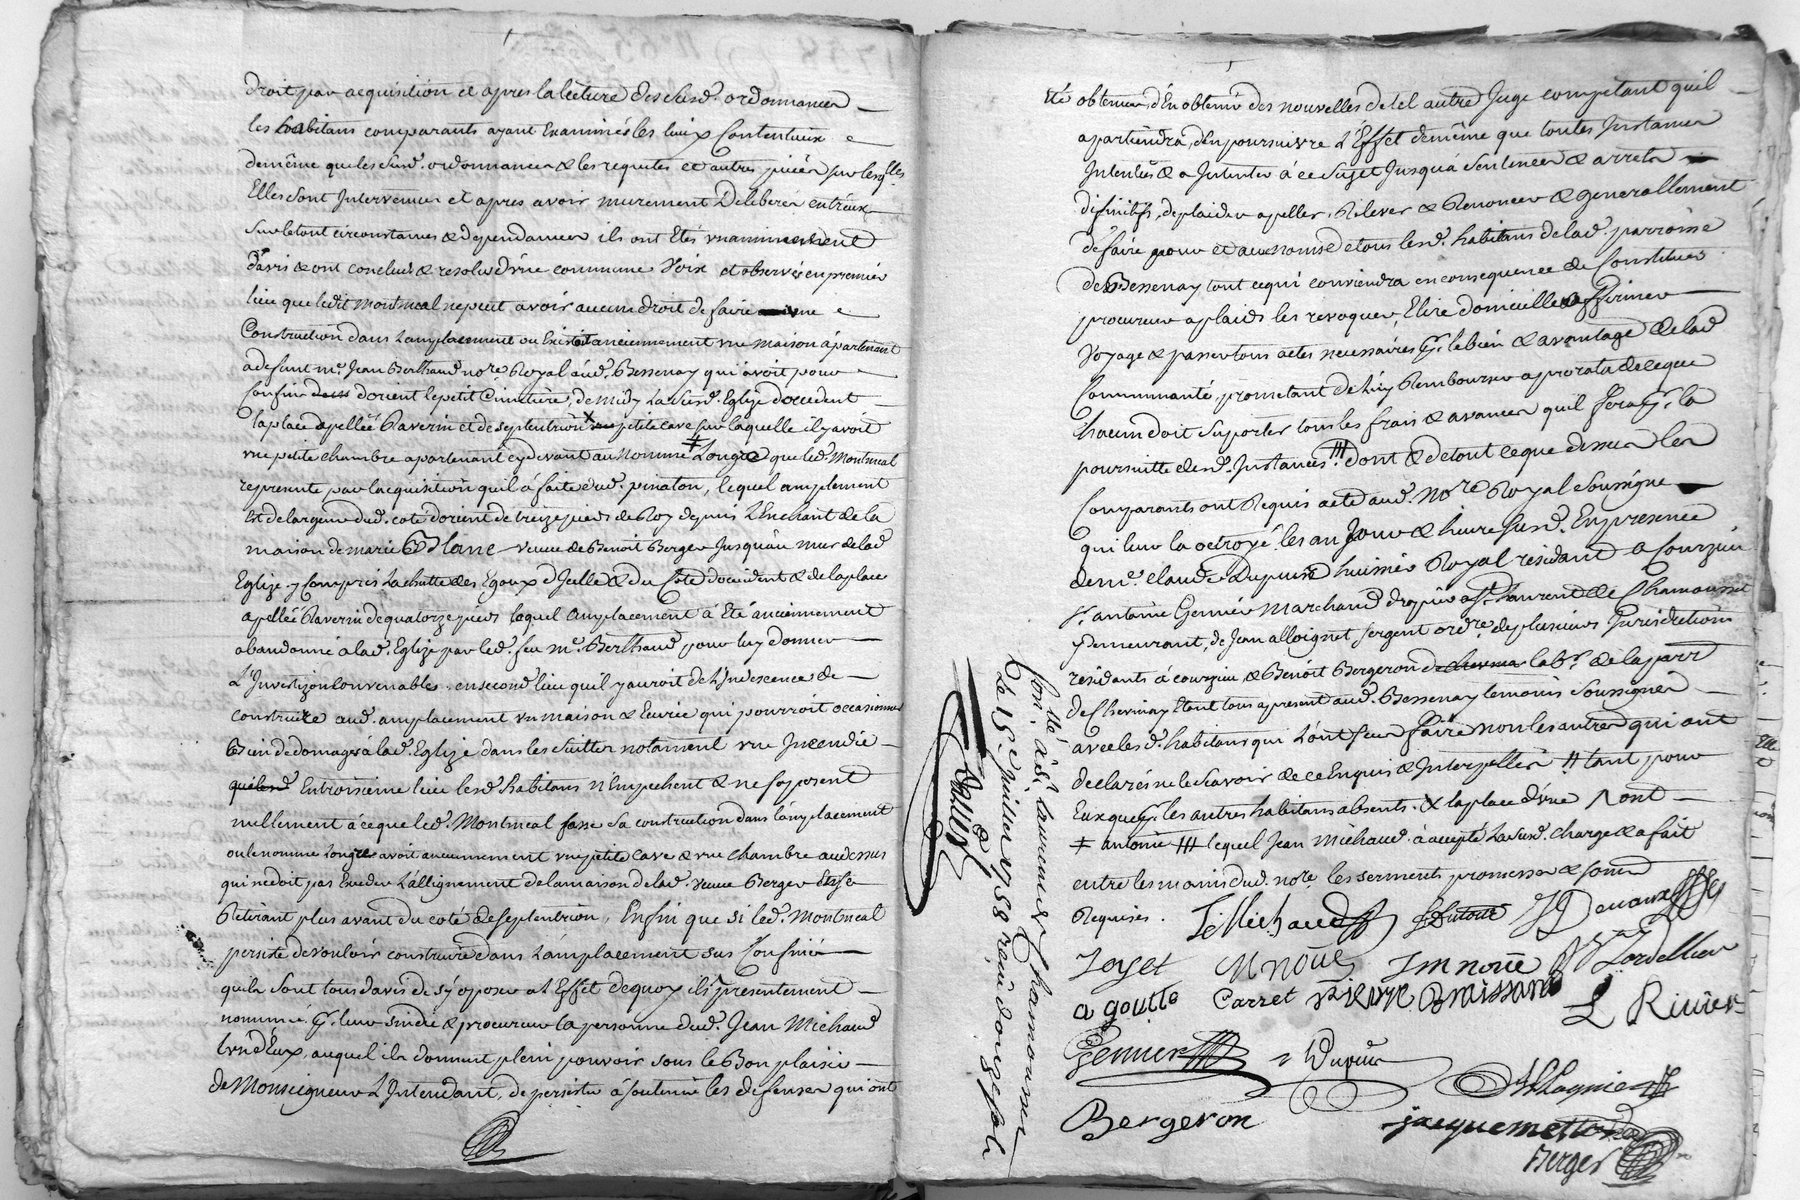 droit par acquisition et apres la lecture des susd. ordonnances
les habitans comparants ayant Examinés les lieux Contentieux
de même que les susd. ordonnances & les requetes et autres pieces sur lesqlles
Elles sont Intervenues et apres avoir murement Deliberés entreux
sur le tout circonstances & dependances ils ont Etés unanimement
d'avis & ont conclud & resolu d'une commune Voix et observés en premier
lieu que ledit Montmeal ne peut avoir aucun droit de faire une
Construction dans Lamplacement ou Existoit anciennement une maison apartenant
a defunt me. Jean Berthaud nore. Royal aud. Bessenay qui avoit pour
confins d'orient le petit Cimitière, de midy La susd. Eglize d'occident
la place apellée Paverin et de septentrion X petite cave sur laquelle il y avoit
une petite chambre apartenant cy devant au Nommé ‡ Longre que led. Montmeal
represente par lacquisition qu'il á faite dud. pinaton, lequel amplement
est de largeur du d. coté d'orient de treize pieds de Roy depuis L'Enchant de la
maison de marie Blanc veuve de Benoit Berger Jusqu'au mur de lad.
Eglize y Compris La chutte des Egoux d'Jcelle & du Coté d'occident & de la place
apellée Paverin de quatorze pieds laquel amplacement à Eté anciennement
abandonné à lad. Eglize par led. feu me. Berthaud pour luy donner
L'Invertizon Convenables. en second lieu qu'il y auroit de L'Indescence de
construire aud. amplacement un maison & Ecurie qui pourroit occasionner
Bien de domages à lad. Eglize dans les suittes notament une Jncendie
Entroisieme lieu lesd. habitans n'Empechent & ne s'oposent
nullement à ce que led. Montmeal fasse sa construction dans l'amplacement
ou le nomme Longre avoit anciennement une petite cave & une chambre au dessus
qui ne doit pas Exceder L'allignement de la maison de lad. veuve Berger Et se
Retirant plus avant du coté de septentrion, Enfin que si led. Montmeal
persiste de vouloir construire dans L'amplacement sus Confiné
quils sont tous d'avis de s'y oposer a L'Effet de quoy ils presentement
nomme pr. leur sindic & procureur la personne dud. Jean Michaud
L'un d'Eux, auquel ils donnent plein pouvoir sous le Bon plaisir
de Monseigneur L'Intendant, de persister á soutenir les defenses qui ont
été obtenues, d'En obtenir des nouvelles de tel autre Juge compétant quil
apartiendra, d'En poursuivre L'Effet de même que toutes Instances
Intentées & a Intenter á ce sujet Jusquá sentences & arrets
difinitifs, de plaider apeller, Relever & Renoncer & generallement
de faire pour et au nom de tous lesd. habitans de lad. parroisse
de Bessenay tout ce qui conviendra en consequence de Constituer
procureur a plaids les revoquer, Elire domicille affirmer
Voyage & passer tous actes necessaires pr. le bien & avantage de lad.
Communauté, prometant de Luy Rembourser a prorata de ce que
Chacun doit suporter tous les frais & avances quil fera pr. la
poursuitte desd. Instances # dont & de tout ce que dessus les
Comparants ont Requis acte aud. Nore. Royal soussigne
qui leur la octroyé les an Jour & heure susd. En presence
de me. claude Dupuis huissier Royal residant a Courzieu
sr. antoine Gennier Marchand drapier a st. Laurent de Chamousset
y demeurant, de Jean alloignet sergent ordre. de plusieurs Jurisdictions
residants á courzieu & Benoit Bergeron labr. de la parr.
de Chevinay Etant tous a present aud. Bessenay temoins soussignés
avec lesd. habitans qui L'ont sceu faire non les autres qui ont
declarés ne le savoir de ce Enquis & Interpellés # tant pour
Eux que pr. les autres habitans absents. X la place d'une /\ ont
‡ antoine # lequel Jean Michaud á accepté La susd. charge & a fait
entre les mains dud. note. les serments promesses & soumis
Requises.
J. Michaud Dutoure J Devaux
Jayet M noue J M noüe Jordellier
a goutte Carret pierre Brossard L Riuier
Gennier Dupuis Allognier
Bergeron jacquemetton
Berger
Con.llé à st. laurent de chamousset
Le 15e juillet 1758 reçu douze sols